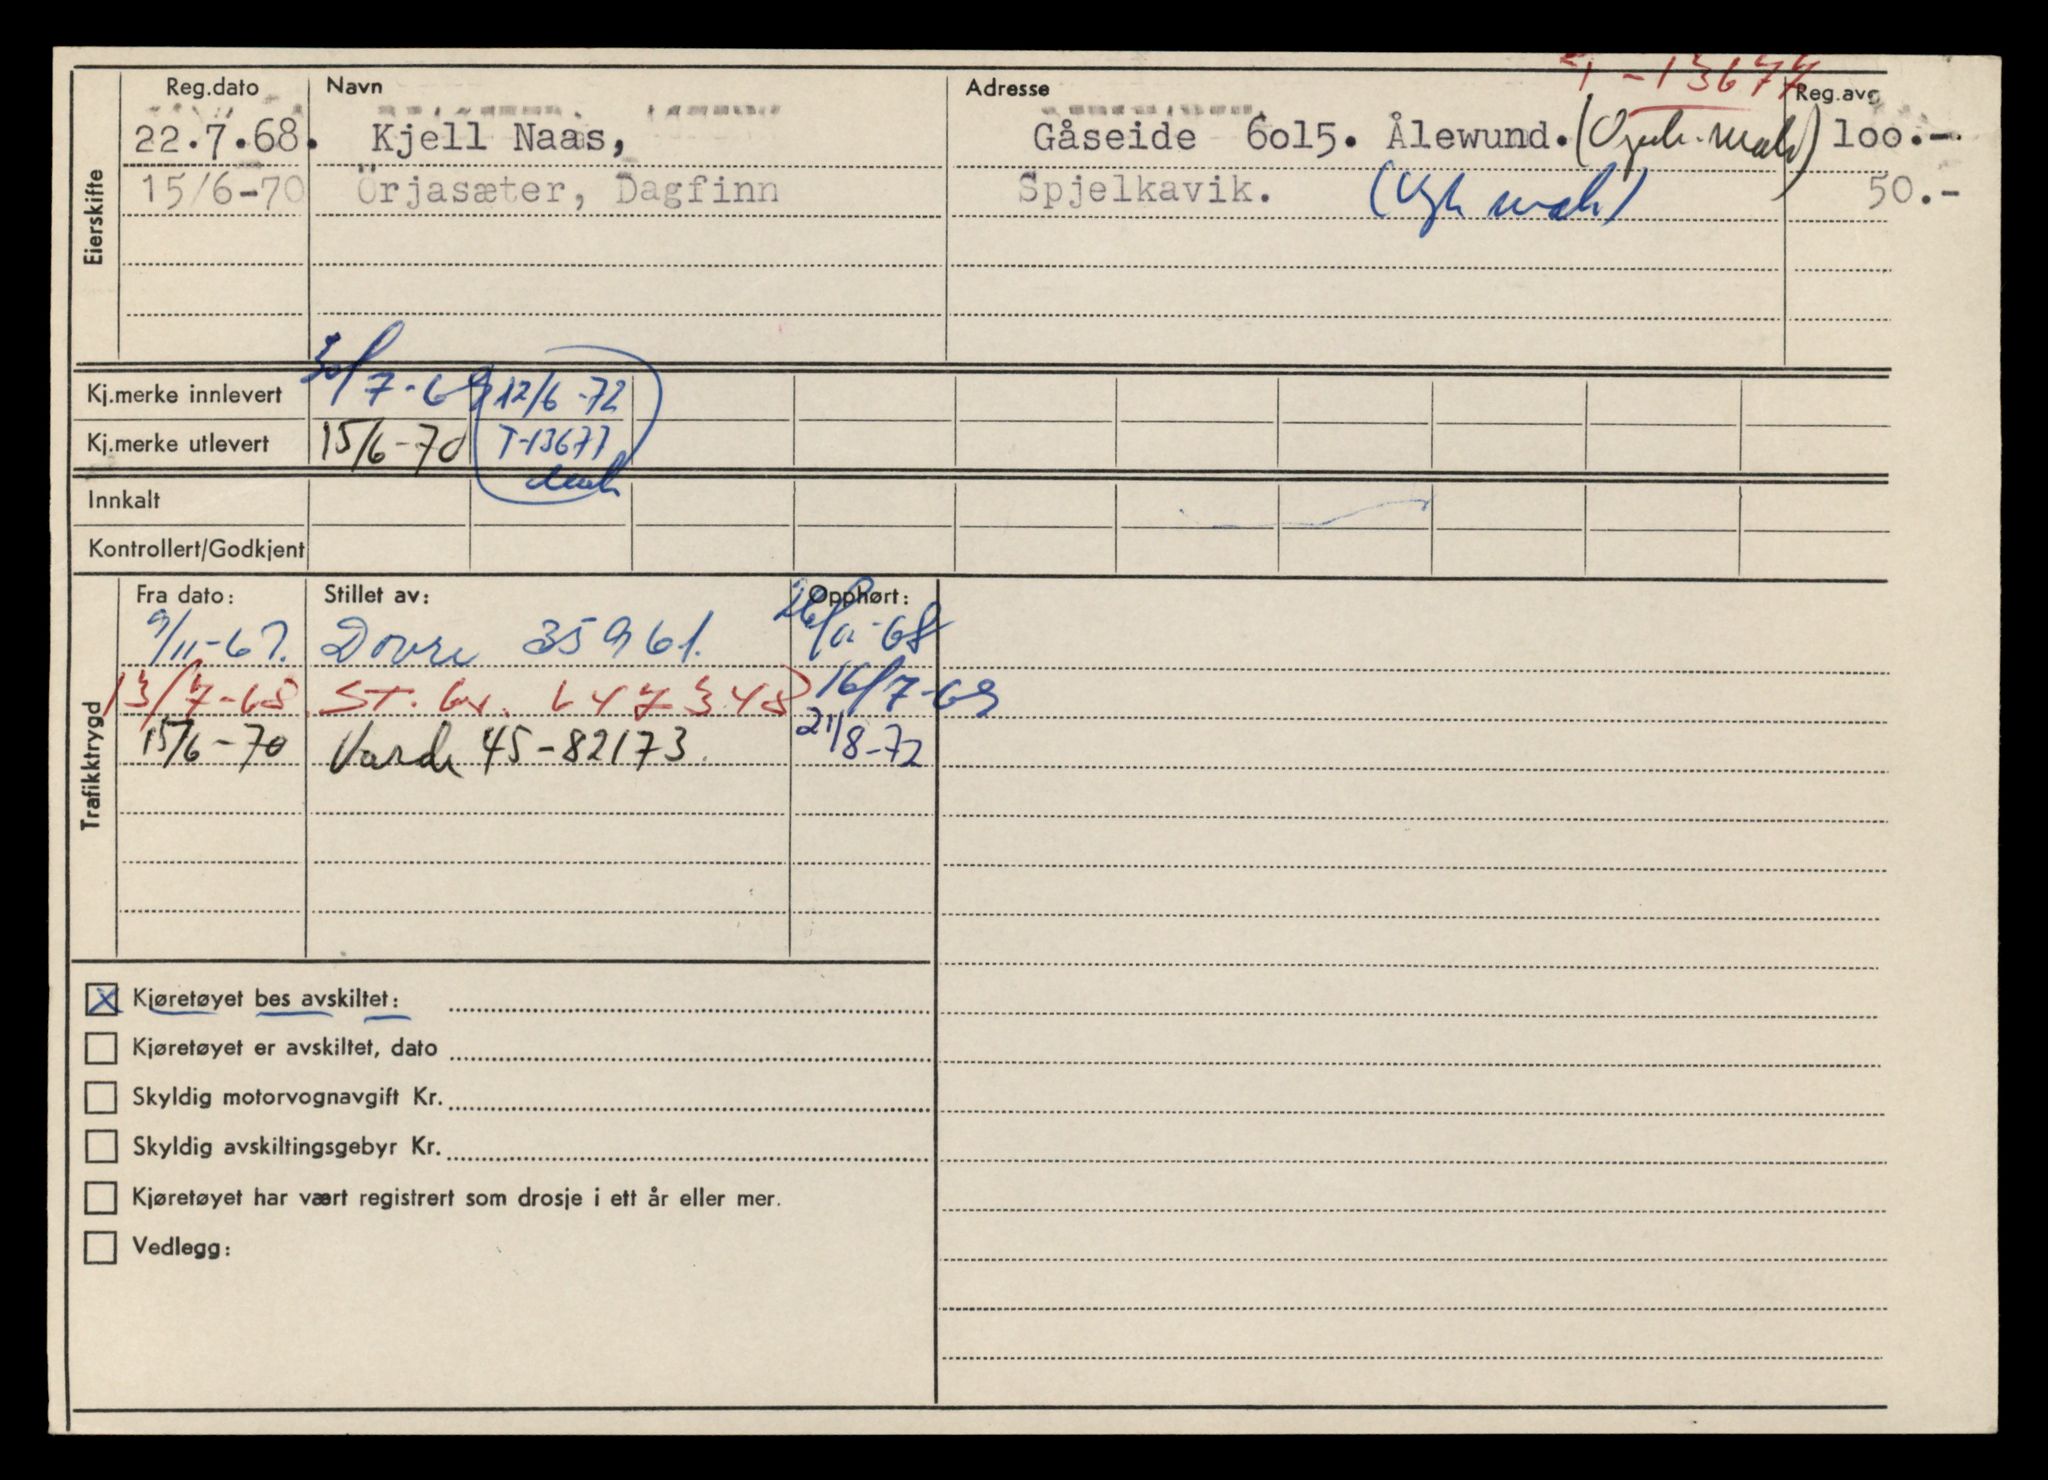 T-13677
Reg.dato Navn Adresse Reg.avg
22.7.68. Kjell Naas, Gåseide 6o15. Ålewund. 1oo.-
15/6-70 Örjasæter, Dagfinn Spjelkavik. 50.-
Eierskifte
Kj.merke innlevert 30/7-69 12/6-72
Kj.merke utlevert 15/6-70 T-13677
Innkalt
Kontrollert/Godkjent
Trafikktrygd
Fra dato: Stillet av: Opphørt:
9/11-67. Dovre 35961. -68
13/7-68. ST. br. 16/7-69
15/6-70 Varde 45-82173. 21/8-72
Kjøretøyet bes avskiltet:
Kjøretøyet er avskiltet, dato
Skyldig motorvognavgift Kr.
Skyldig avskiltingsgebyr Kr.
Kjøretøyet har vært registrert som drosje i ett år eller mer.
Vedlegg: